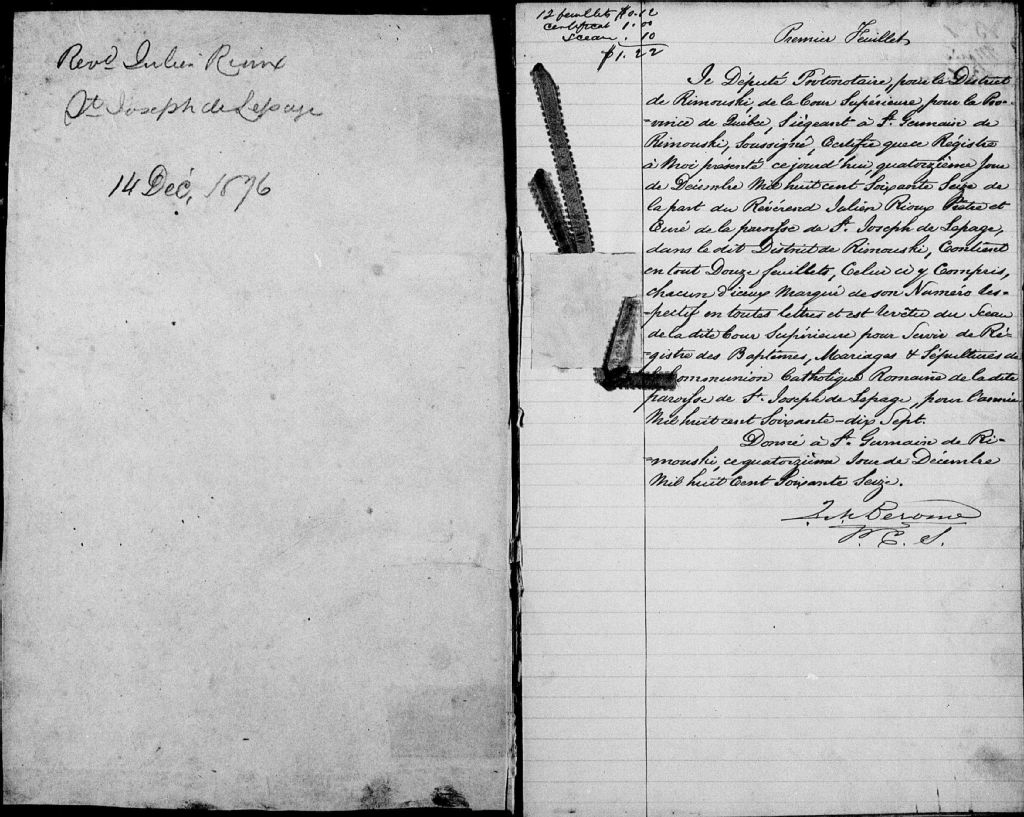 Revd Julien Rioux
St Joseph de Lepage
14 Déc, 1876
12 feuillets $0.12
certificat 1.00
Sceau . 10
$1.22
Premier Feuillet
Je Député Protonotaire, pour le District
de Rimouski, de la Cour Supérieure, pour la Pro-
-vince de Québec, Siégeant à St. Germain de
Rimouski, Soussigné, Certifie que ce Régistre
à Moi présenté ce jourd'hui, quatorzième Jour
de Décembre Mil huit cent Soixante Seize de
la part du Révérend Julien Rioux Prêtre et
Curé de la paroisse de St. Joseph de Lepage,
dans le dit District de Rimouski, Contient
en tout Douze feuillets, Celui ci y Compris,
chacun d'iceux Marqué de son Numéro res-
-pectif en toutes lettres et est revêtu du Sceau
de la dite Cour Supérieure pour Servir de Ré-
-gistre des Baptêmes, Mariages & Sépultures de
la Communion Catholique Romaine de la dite
paroisse de St. Joseph de Lepage, pour l'année
Mil huit cent Soixante-dix Sept.
Donné à St. Germain de Ri-
-mouski, ce quatorzième Jour de Décembre
Mil huit Cent Soixante Seize.
P. C. S.